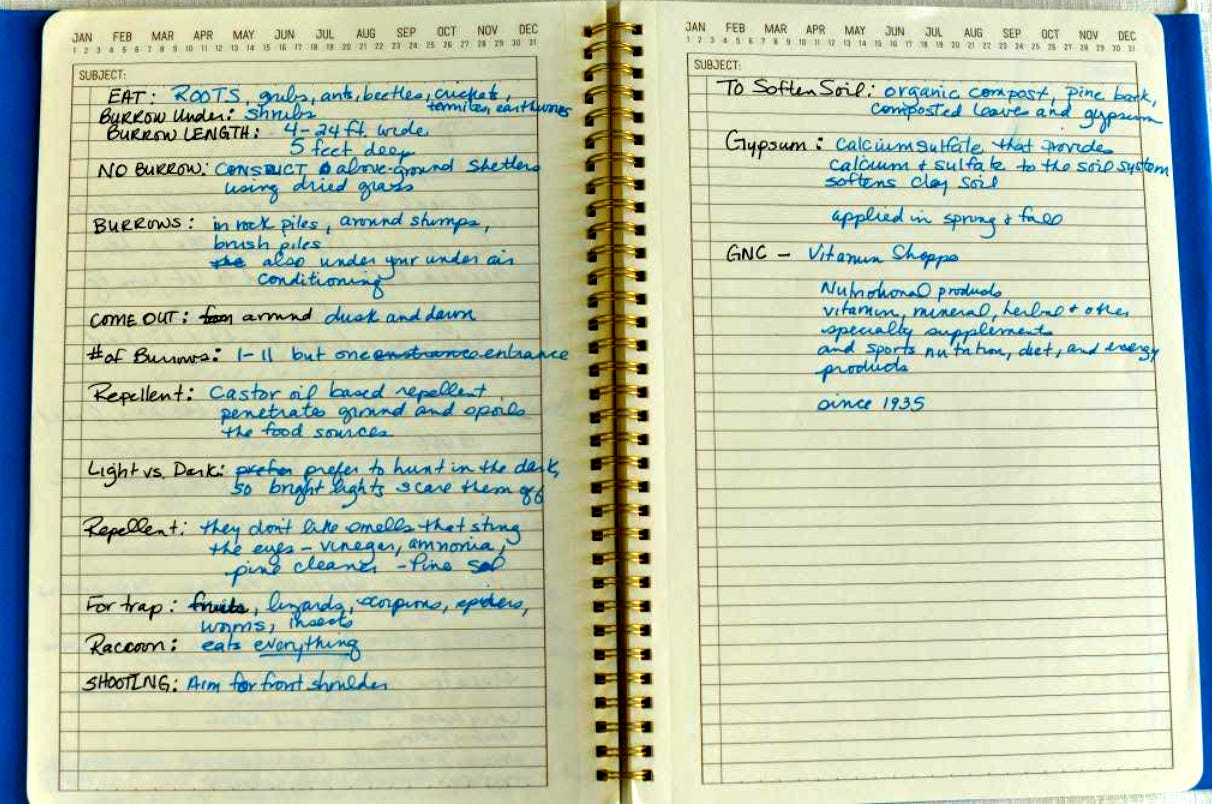 JAN FEB MAR APR MAY JUN JUL AUG SEP OCT NOV DEC
1 2 3 4 5 6 7 8 9 10 11 12 13 14 15 16 17 18 19 20 21 22 23 24 25 26 27 28 29 30 31
SUBJECT:
EAT: ROOTS, grubs, ants, beetles, crickets,
termites, earthworms
BURROW Under: Shrubs
BURROW LENGTH: 4-24 ft. wide
5 feet deep
NO BURROW: CONSTRUCT above-ground Shelters
using dried grass
BURROWS: in rock piles, around stumps,
brush piles
also under your under air
conditioning
COME OUT: around dusk and dawn
# of Burrows: 1-11 but one entrance
Repellent: Castor oil based repellent
penetrates ground and spoils
the food sources
Light vs. Dark: prefer to hunt in the dark,
so bright lights scare them off
Repellent: they don't like smells that sting
the eyes - vinegar, ammonia,
pine cleaner - Pine Sol
For trap: fruits, lizards, scorpions, spiders,
worms, insects
Raccoon: eats everything
SHOOTING: Aim for front shoulder
JAN FEB MAR APR MAY JUN JUL AUG SEP OCT NOV DEC
1 2 3 4 5 6 7 8 9 10 11 12 13 14 15 16 17 18 19 20 21 22 23 24 25 26 27 28 29 30 31
SUBJECT:
To Soften Soil: organic compost, pine bark,
composted leaves and gypsum
Gypsum: Calcium sulfate that provides
calcium + sulfate to the soil system
softens clay soil
applied in spring + fall
GNC - Vitamin Shoppe
Nutritional products
vitamin, mineral, herbal + other
specialty supplements
and sports nutrition, diet, and energy
products
since 1935